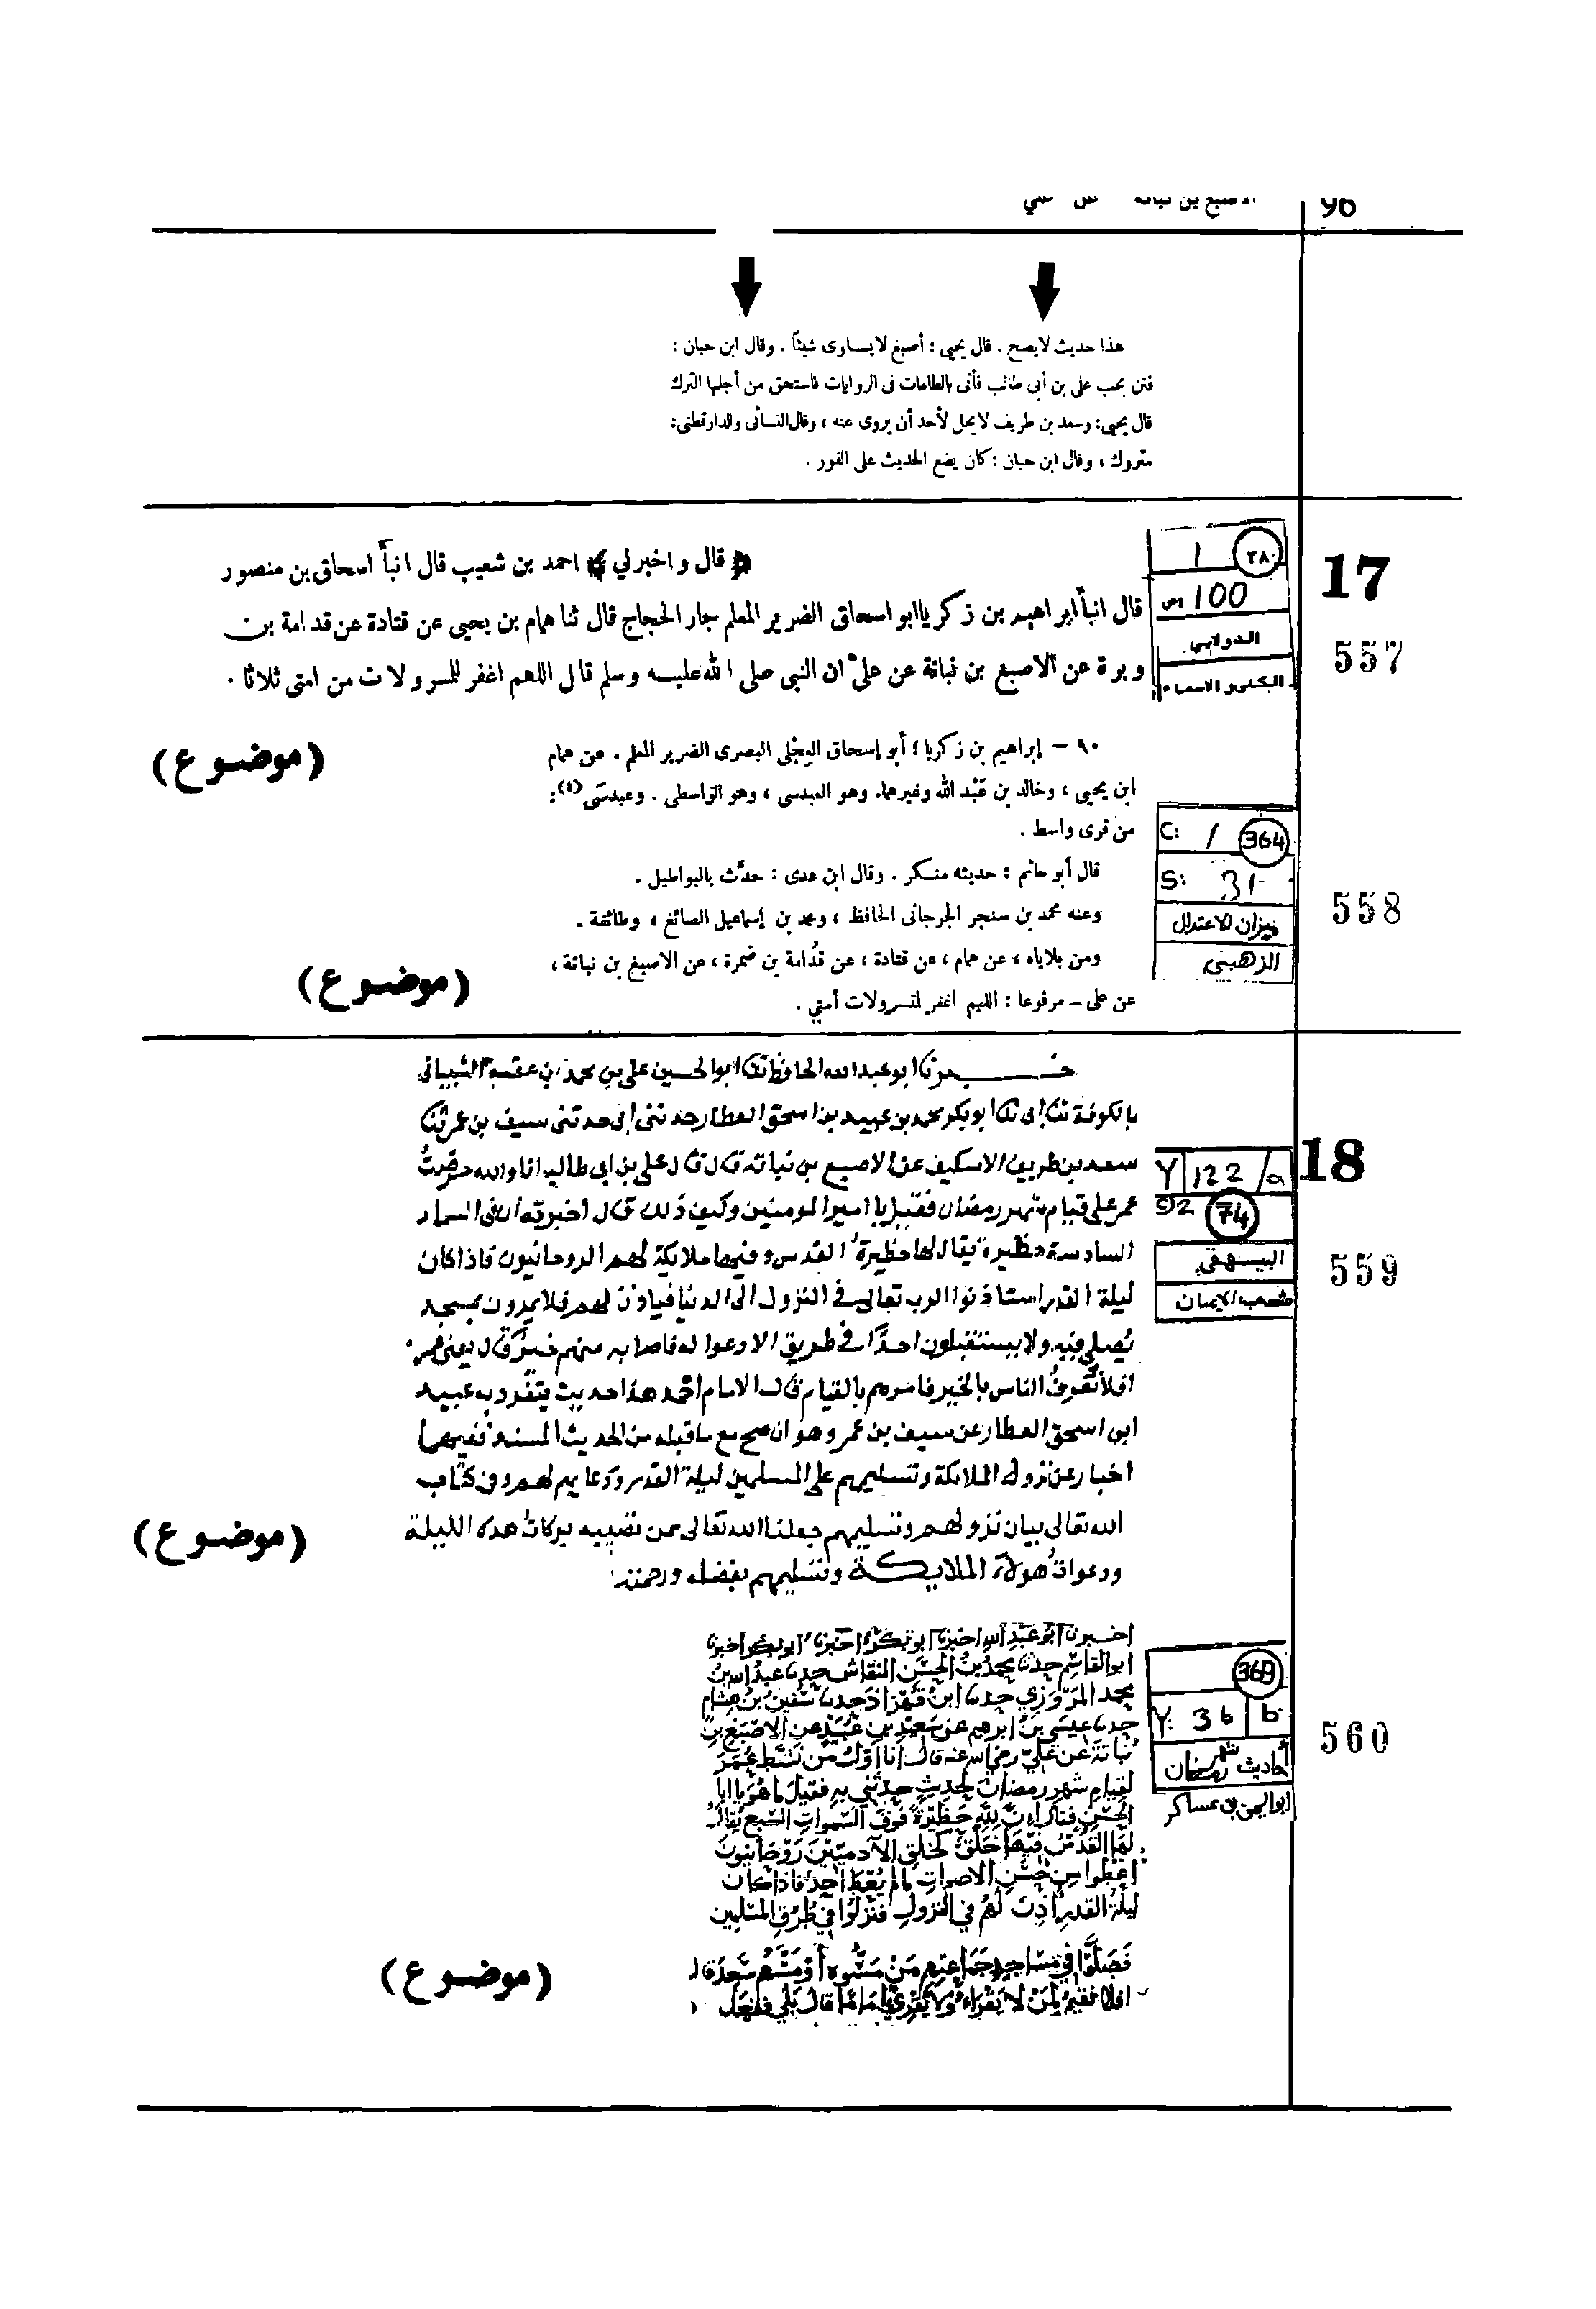 96
هذا حديث لا يصح . قال يحيى : أصبغ لا يساوى شيئاً . وقال ابن حبان :
فتن بحب على بن أبى طالب فأتى بالطامات فى الروايات فاستحق من أجلها الترك
قال يحيى : وسعد بن طريف لا يحل لأحد أن يروى عنه ، وقال النسائى والدارقطنى :
متروك ، وقال ابن حبان : كان يضع الحديث على الفور .
17
557
٢٨٠
1
ص 100
الدولابي
الكنى والاسماء
﴿ قال واخبرني ﴾ احمد بن شعيب قال انبأ اسحاق بن منصور
قال انبأ ابراهيم بن زكريا ابو اسحاق الضرير المعلم جار الحجاج قال ثنا همام بن يحيى عن قتادة عن قدامة بن
وبرة عن الاصبغ بن نباتة عن على ان النبي صلى الله عليه وسلم قال اللهم اغفر للمسرولات من امتى ثلاثا .
(موضوع)
٩٠ – إبراهيم بن زكريا ؛ أبو إسحاق العِجْلى البصرى الضرير المعلم . عن همام
ابن يحيى ، وخالد بن عَبْد الله وغيرهما. وهو العبدسى ، وهو الواسطى . وعبدسَى (٤) :
من قرى واسط .
قال أبو حاتم : حديثه منكر . وقال ابن عدى : حدّث بالبواطيل .
وعنه محمد بن سنجر الجرجانى الحافظ ، ومحمد بن إسماعيل الصائغ ، وطائفة .
ومن بلاياه ، عن همام ، عن قتادة ، عن قُدامة بن ضمرة ، عن الاصبغ بن نباتة ،
عن على – مرفوعا : اللهم اغفر لمتسرولات أمتي .
(موضوع)
C: 1 364
S: 31
ميزان الاعتدال
الذهبي
558
18
559
Y 122/a
74
البيهقي
شعب الايمان
ابو عبدالله الحافظ ابو الحسين على بن محمد بن عقبة الشيبانى
بالكوفة ابو بكر محمد بن عبيد بن اسحق العطار حدثنى ابى حدثنى سيف بن عمر
سعد بن طريف الاسكيف عن الاصبغ بن نباتة قال قال على بن ابى طالب انا والله حرضتُ
عمر على قيام شهر رمضان فقيل يا امير المومنين وكيف ذلك قال اخبرته ان فى السماء
السادسة حظيرة يقال لها حظيرة القدس وفيها ملايكة لهم الروحانيون فاذا كان
ليلة القدر استاذنوا الرب تعالى فى النزول الى الدنيا فياذن لهم فلا يمرون بمسجد
يُصلى فيه ولا يستقبلون احدًا فى طريق الا دعوا له فاصابه منهم خير قال يعنى عمر
افلا نُعرفُ الناس بالخير فامرهم بالقيام قال الامام احمد هذا حديث يتفرد به عبيد
ابن اسحق العطار عن سيف بن عمر وهو ان صح مع ما قبله من الحديث المسند ففيهما
اخبار عن نزول الملائكة وتسليمهم على المسلمين ليلة القدر ودعايهم لهم وفى كتاب
الله تعالى بيان نزولهم وتسليمهم جعلنا الله تعالى ممن نصيبه بركات هذه الليلة
ودعوات هولاء الملايكة وتسليمهم بفضله ورحمته
(موضوع)
560
369
Y: 36 b
أحاديث شهر رمضان
ابو اليمن بن عساكر
اخبرنا ابو عبدالله اخبرنا ابو بكر اخبرنا ابو بكر اخبرنا
ابو القاسم حدثنا محمد بن الحسن النقاش حدثنا عبد الله بن
محمد المروزي حدثنا ابن قهزاذ حدثنا سفين بن هشام
حدثنا عيسى بن ابرهيم عن سعيد بن عبيد عن الاصبغ بن
نباتة عن علي رضي الله عنه قال انا اول من نشط عمر
لقيام شهر رمضان لحديث حدثني به فقيل ما هو يا ابا
الحسن فقال ان لله حظيرة فوق السموات السبع يقال
لها القدس فيها خلق كخلق الآدميين روحانيون
اعطوا من حسن الاصوات ما لم يعط احد فاذا كان
ليلة القدر أذن لهم في النزول فنزلوا في طرق المسلمين
فصلوا في مساجد جماعتهم من مسوه أو مسهم سعد قال
قال بلى ففعل
(موضوع)